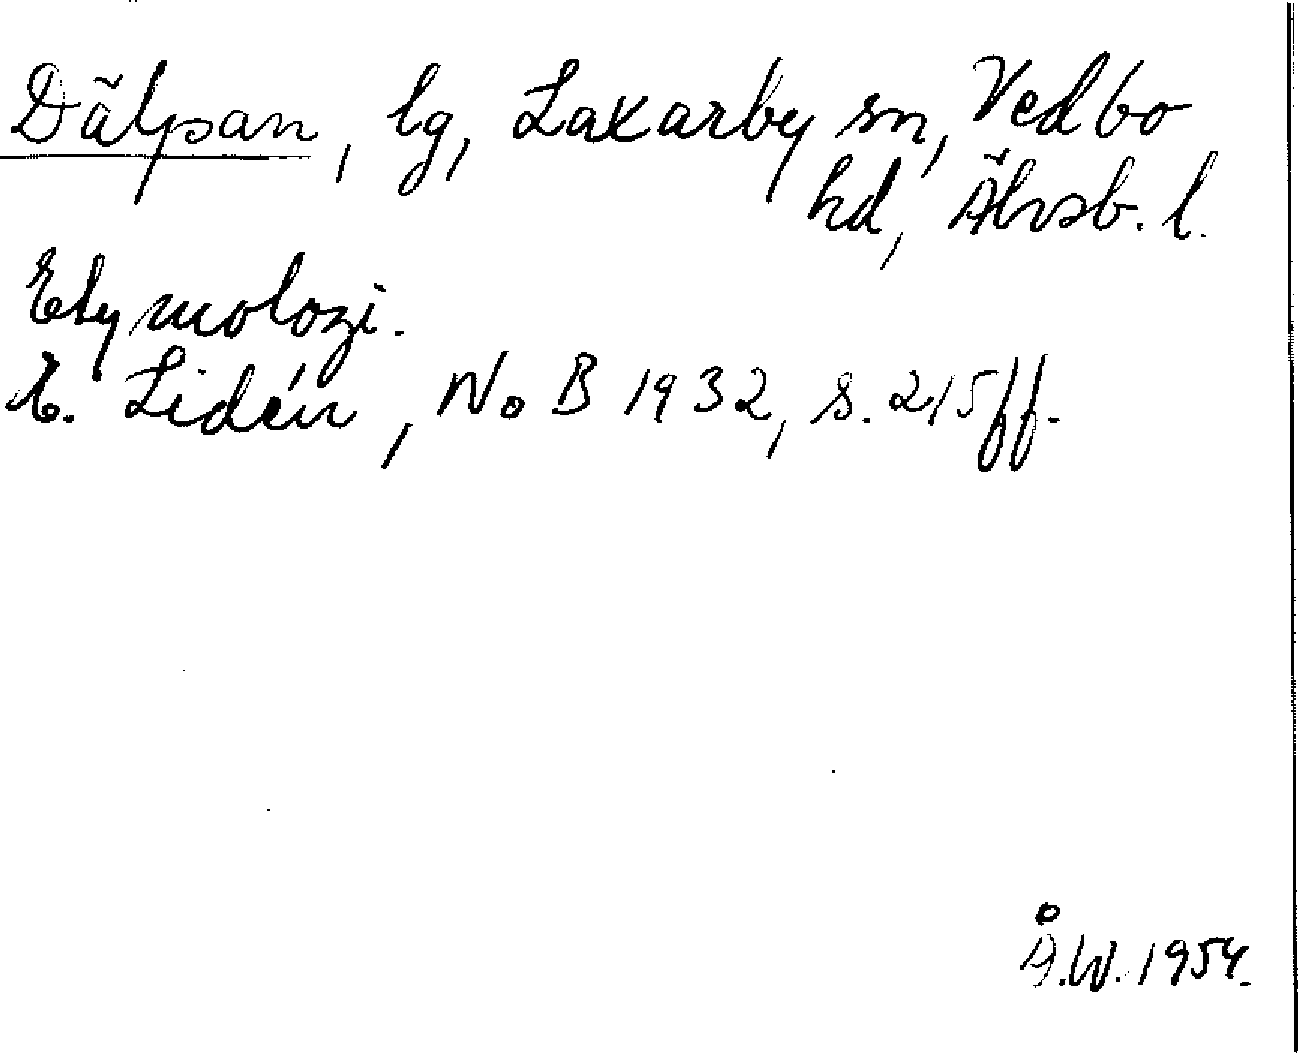 Dälpan, lg, Laxarby sn, Vedbo
hd, Älvsb. l.
Etymologi.
E. Lidén, NoB 1932, s. 215 ff.
Å.W. 1954.